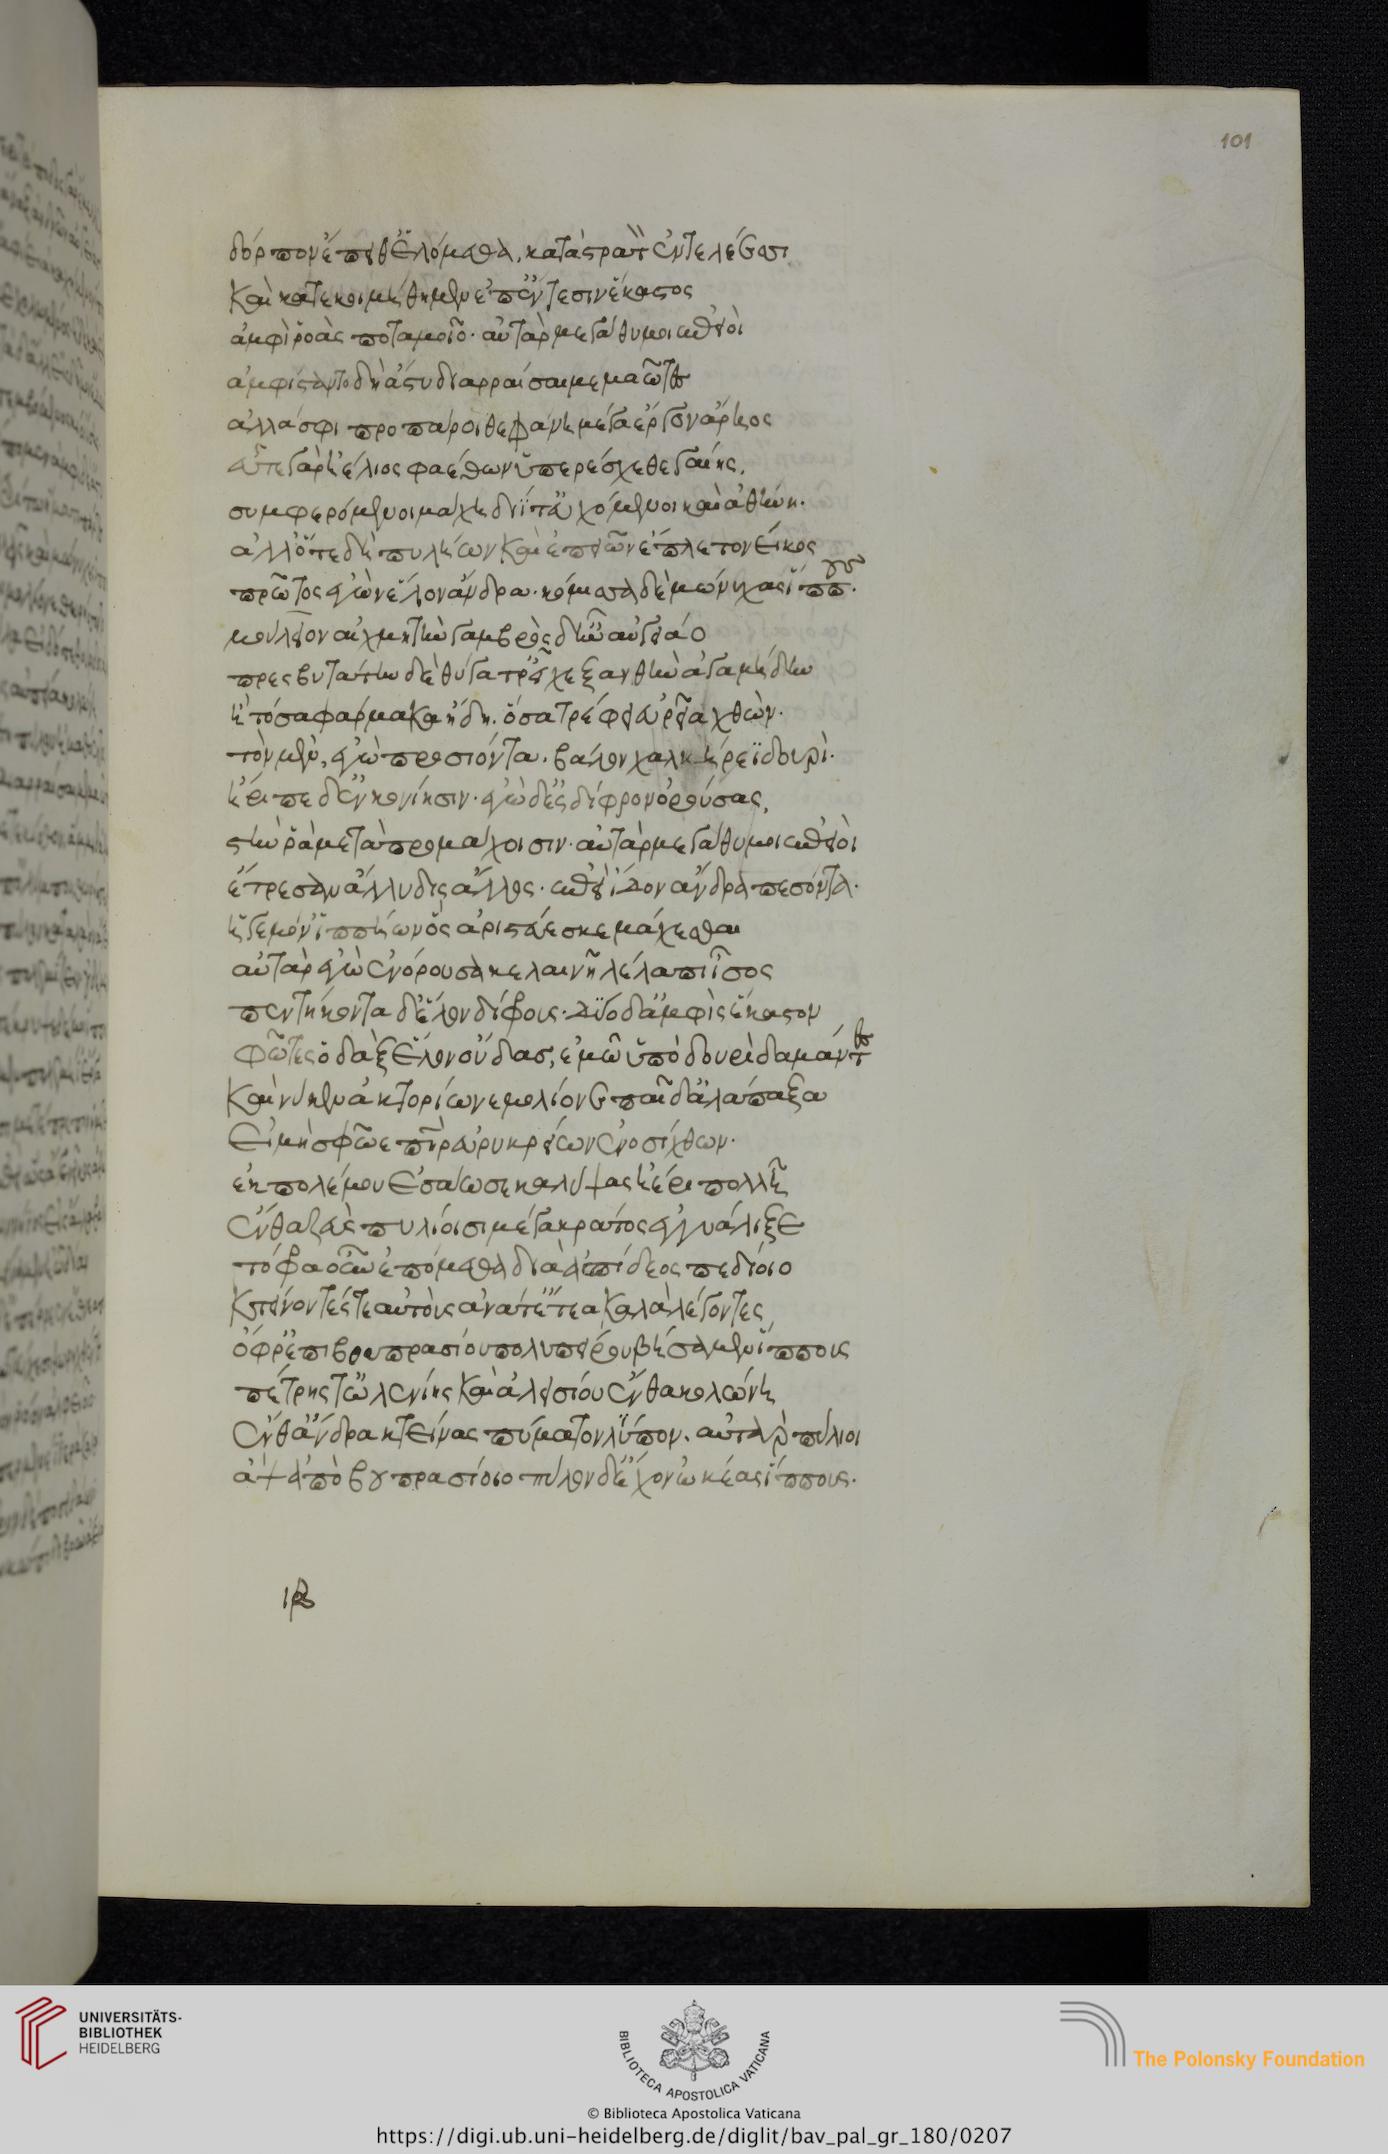 δόρπον ἔπειθ' ἑλόμεσθα, κατὰ στρατὸν ἐν τελέεσσι
καὶ κατεκοιμήθημεν ἐπ' ἔντεσιν ἕκαστος
ἀμφὶ ῥοὰς ποταμοῖο· αὐτὰρ μεγάθυμοι ἐπειοὶ
ἀμφίσταντο δὴ ἄστυ διαρραίσαι μεμαῶτες
ἀλλά σφι προπάροιθε φάνη μέγα ἔργον ἄρηος
εὖτε γὰρ ἠέλιος φαέθων ὑπερέσχεθε γαίης,
συμφερόμενοι μάχη διΐ τ' εὐχόμενοι καὶ ἀθήνη·
ἀλλ' ὅτε δὴ πυλήων καὶ ἐπειῶν ἔπλετο νεῖκος
πρῶτος ἐγὼν ἕλον ἄνδρα· κόμισσα δὲ μώνυχας ἵππους·
μούλιον αἰχμητὴν γαμβρὸς δ' ἦν αὐγείαο
πρεσβυτάτην δὲ θύγατρ' εἶχε ξανθὴν ἀγαμήδην
ἣ τόσα φάρμακα ἤδη· ὅσα τρέφει εὐρεῖα χθών·
τὸν μὲν, ἐγὼ προσιόντα· βάλον χαλκήρεϊ δουρὶ·
ἤριπε δ' ἐν κονίησιν· ἐγὼ δ' ἐς δίφρον ὀρούσας,
στὴν ῥὰ μετὰ προμάχοισιν· αὐτὰρ μεγάθυμοι ἐπειοὶ
ἔτρεσαν ἄλλυδις ἄλλος· ἐπεὶ ἴδον ἄνδρα πεσόντα·
ἡγεμόν' ἱππήων ὃς ἀριστεύεσκε μάχεσθαι
αὐτὰρ ἐγὼ ἐνόρουσα κελαινῆ λέλαπι ἶσος
πεντήκοντα δ' ἕλον δίφρους· δύο δ' ἀμφὶς ἕκαστον
φῶτες ὀδὰξ ἕλον οὖδας, ἐμῶ ὑπὸ δουρὶ δαμάντες
καὶ νύ κεν ἀκτορίωνε μολίονε παῖδ' ἀλάπαξα
εἰ μὴ σφῶε πατὴρ εὐρυκρείων ἐνοσίχθων·
ἐκ πολέμου ἐσάωσε καλύψας ἠέρι πολλῆ
ἔνθα ζεὺς πυλίοισι μέγα κράτος ἐγγυάλιξε
τόφρα οὖν ἑπόμεσθα διὰ ἀσπίδεος πεδίοιο
κτείνοντές τε αὐτοὺς ἀνά τ' ἔντεα καλὰ λέγοντες
ὄφρ' ἐπὶ βουπρασίου πολυπύρου βήσαμεν ἵππους
πέτρης τ' ὠλενίης καὶ ἀλεισίου ἔνθα κολώνη
ἔνθ' ἄνδρα κτείνας πύματον λίπον· αὐτὰρ πύλιοι
ἂψ ἀπὸ βουπρασίοιο πύλον δ' ἔχον ὠκέας ἵππους·
101
UNIVERSITÄTS-
BIBLIOTHEK
HEIDELBERG
BIBLIOTECA APOSTOLICA VATICANA
The Polonsky Foundation
© Biblioteca Apostolica Vaticana
https://digi.ub.uni-heidelberg.de/diglit/bav_pal_gr_180/0207